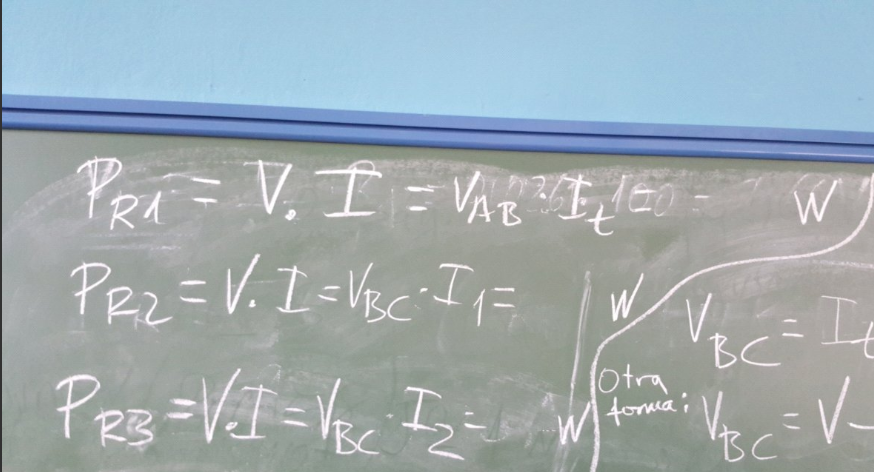 P_R1 = V. I = V_AB · I_t = W
P_R2 = V. I = V_BC · I_1 = W
P_R3 = V.I = V_BC · I_2 = W
V_BC = I_t
Otra
forma:
V_BC = V-